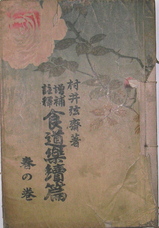 村井弦齋著
増補
註釋
食道樂續篇
春の巻